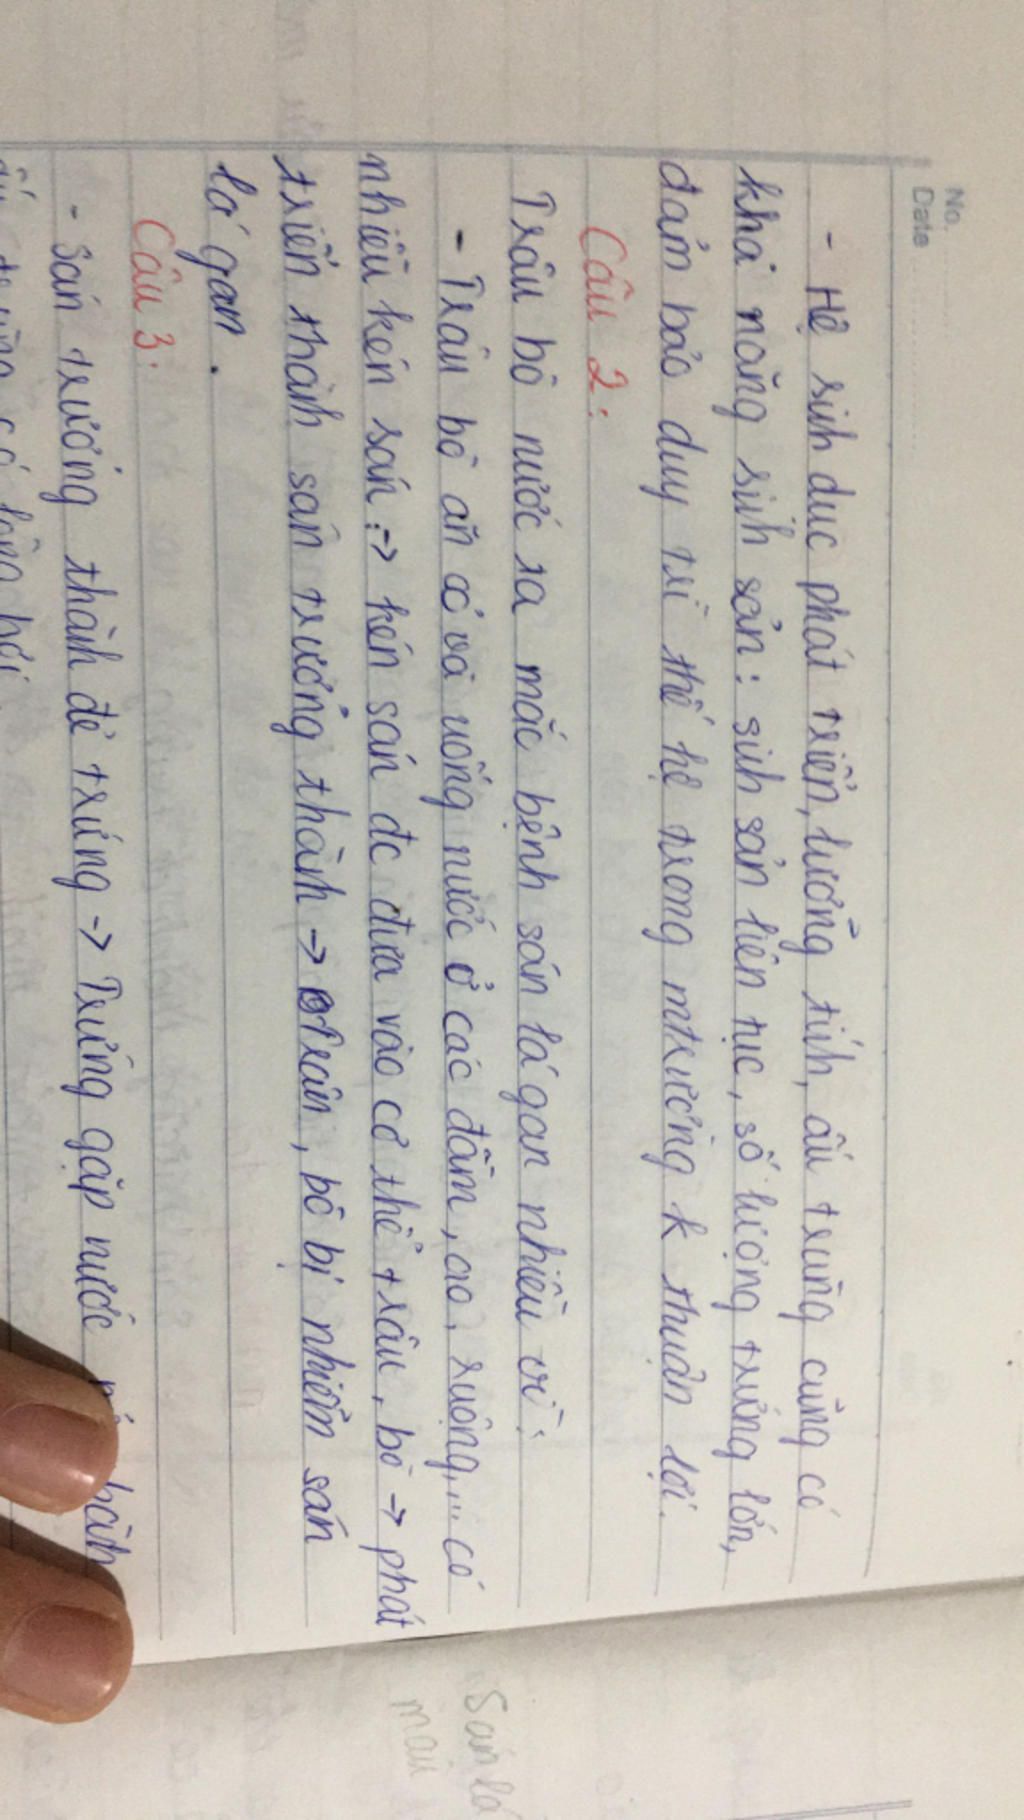 No.
Date
- Hệ sinh dục phát triển, lưỡng tính, ấu trùng cũng có
khả năng sinh sản: sinh sản liên tục, số lượng trứng lớn,
đảm bảo duy trì thế hệ trong mtrường k thuận lợi.
Câu 2:
Trâu bò nước ra mắc bệnh sán lá gan nhiều vì:
- Trâu bò ăn cỏ và uống nước ở các đầm, ao, ruộng,... có
nhiều kén sán :-> kén sán đc đưa vào cơ thể trâu, bò -> phát
triển thành sán trưởng thành -> trâu, bò bị nhiễm sán
lá gan.
Câu 3.
- Sán trưởng thành đẻ trứng -> Trứng gặp nước
Sán lá
máu